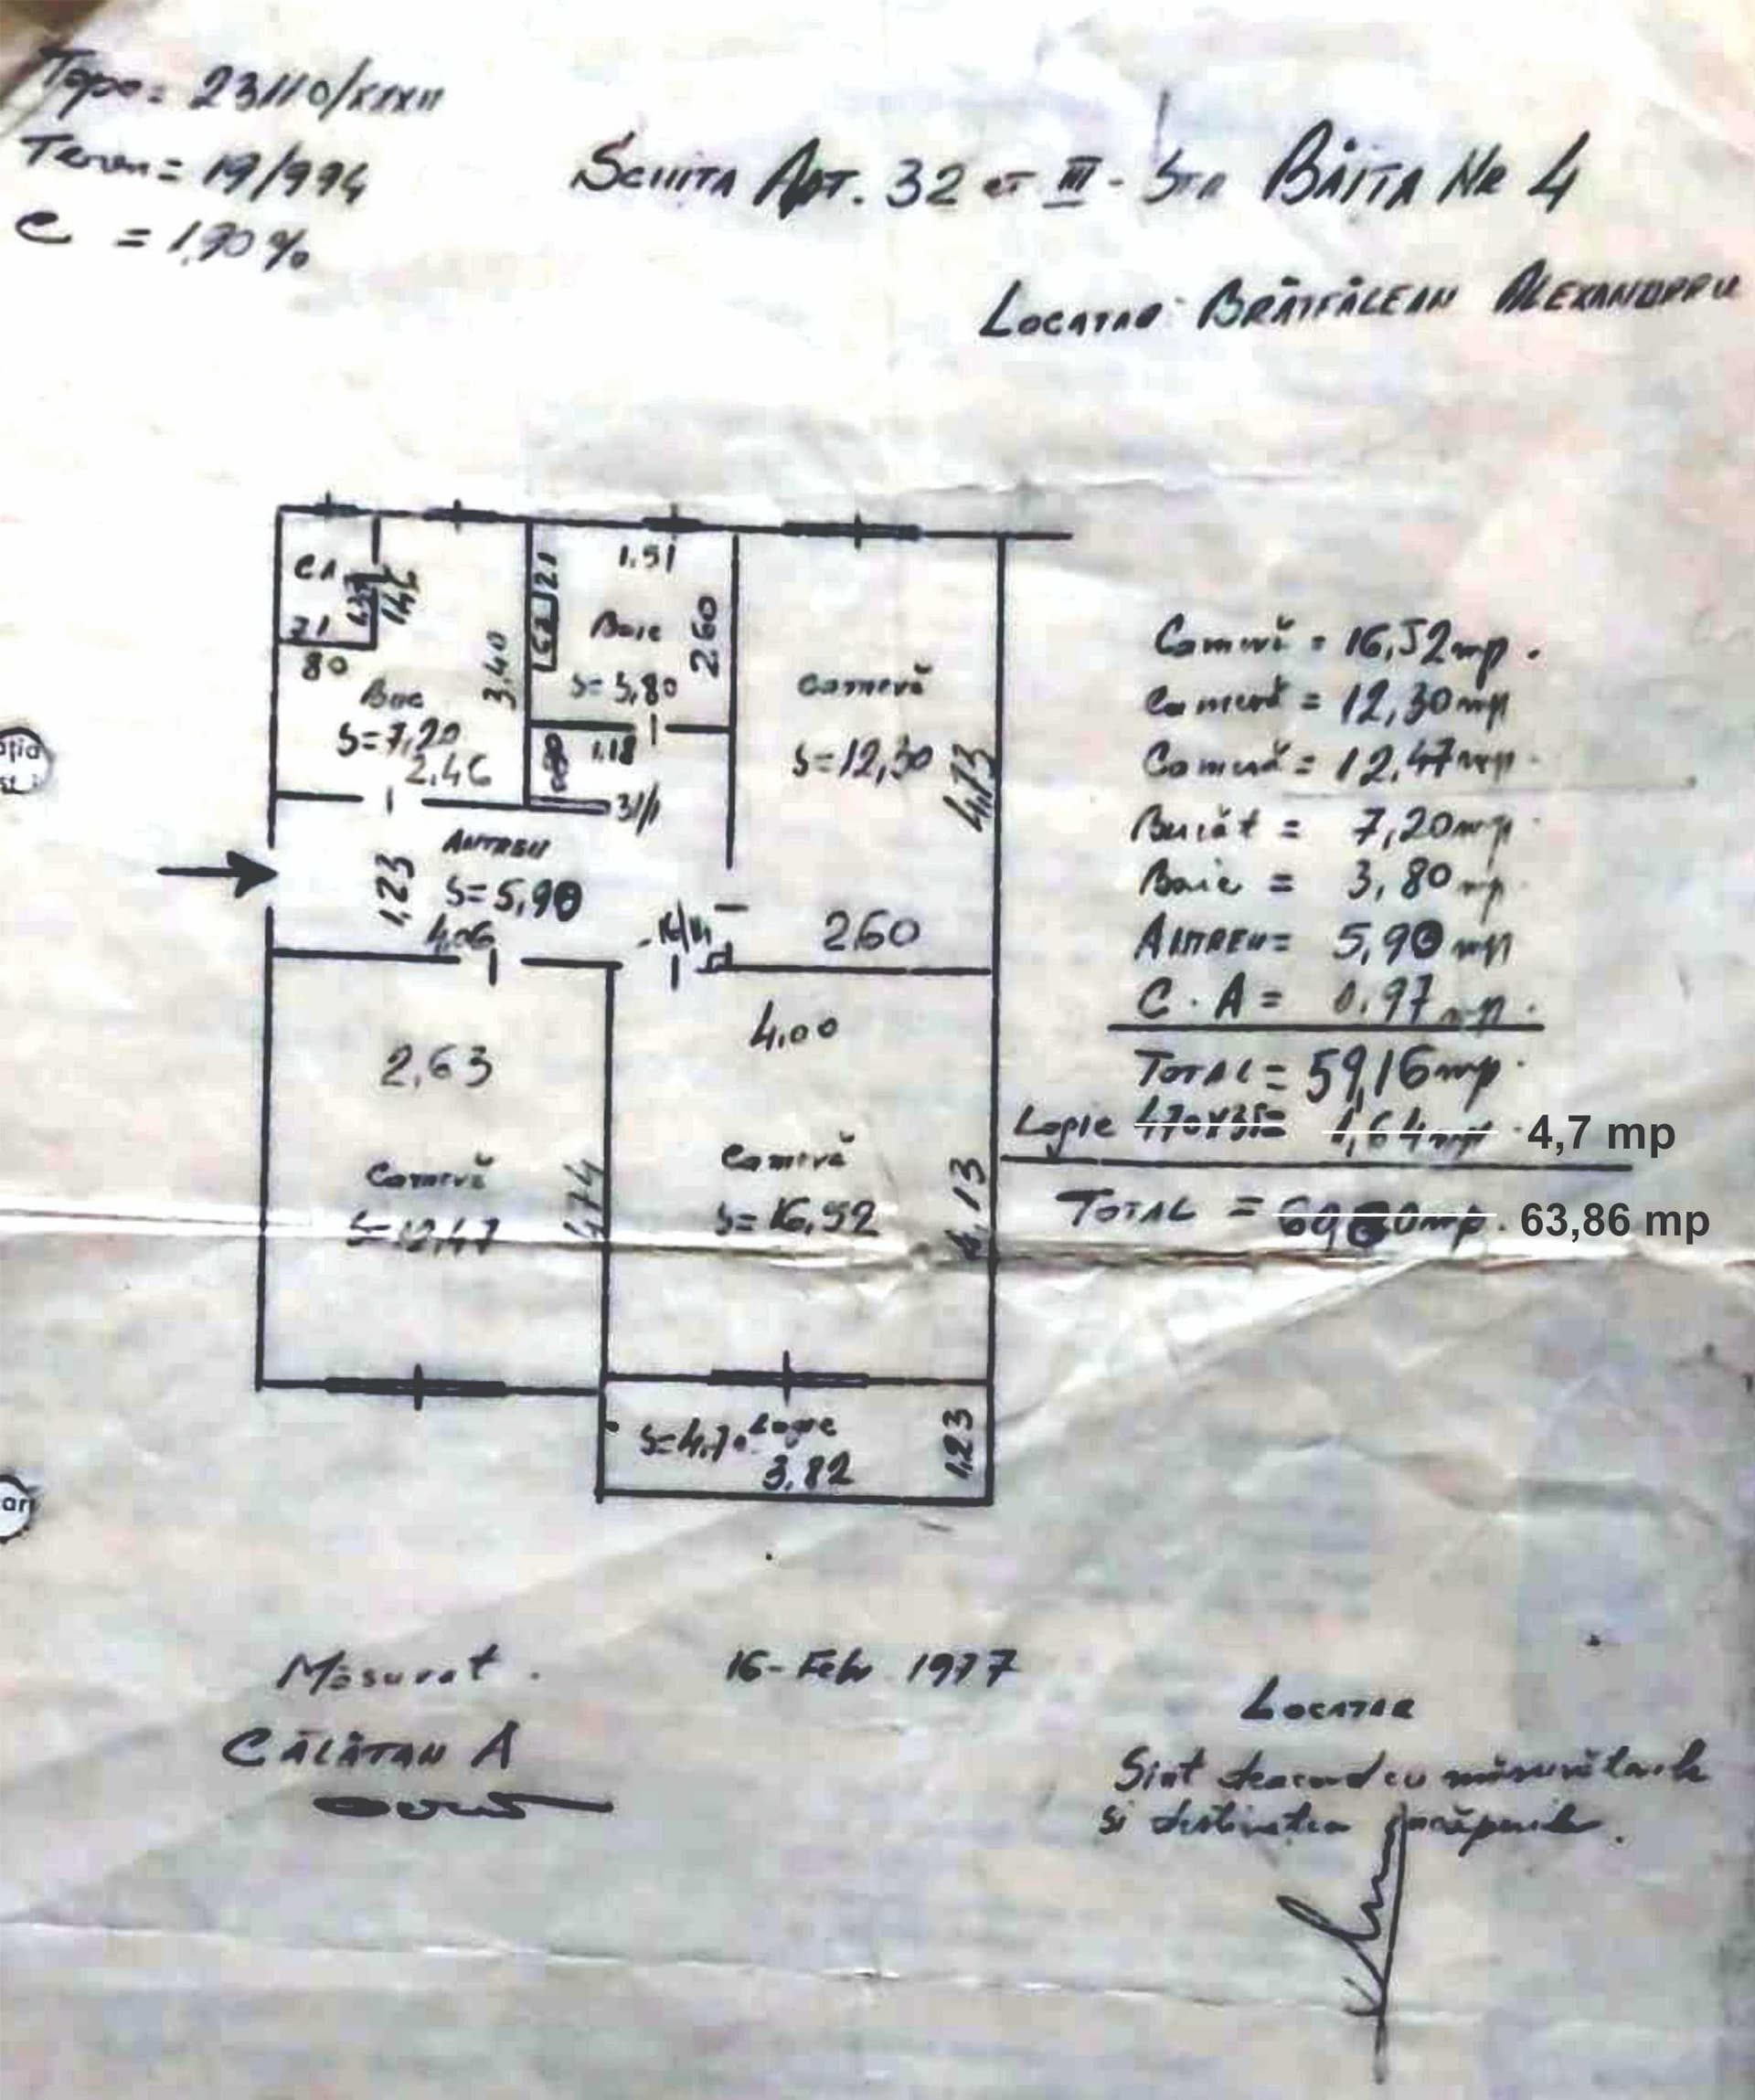 Topo: 23110/XXXII
Teren = 19/994
C = 1,90 %
SCHITA APT. 32 ET III - STR BĂITA NR 4
LOCATAR BRĂTFĂLEAN ALEXANDRRU
CA
1.51
21
80
2.60
3,40
Baie
S= 3,80
Buc
S=7,20
2.46
1.18
31/1
Cameră
S=12,30
4,73
ANTREU
1,23
S=5,90
4,06
2.60
4,00
2,63
Cameră
S=12,47
4,74
Cameră
S=16,52
4,13
S=4,70 Logie
3,82
1,23
Cameră = 16,52 mp.
Cameră = 12,30 mp
Cameră = 12,47 mp.
Bucăt = 7,20 mp.
Baie = 3,80 mp.
ANTREU = 5,90 mp
C.A = 0.97 mp.
TOTAL = 59,16 mp.
Logie 4,64 mp. 4,7 mp
TOTAL = 63,86 mp
Măsurat.
16-Febr 1977
CĂLĂTAN A
LOCATAR
Sint deacord cu măsurătorile
si destinatia încăperilor.